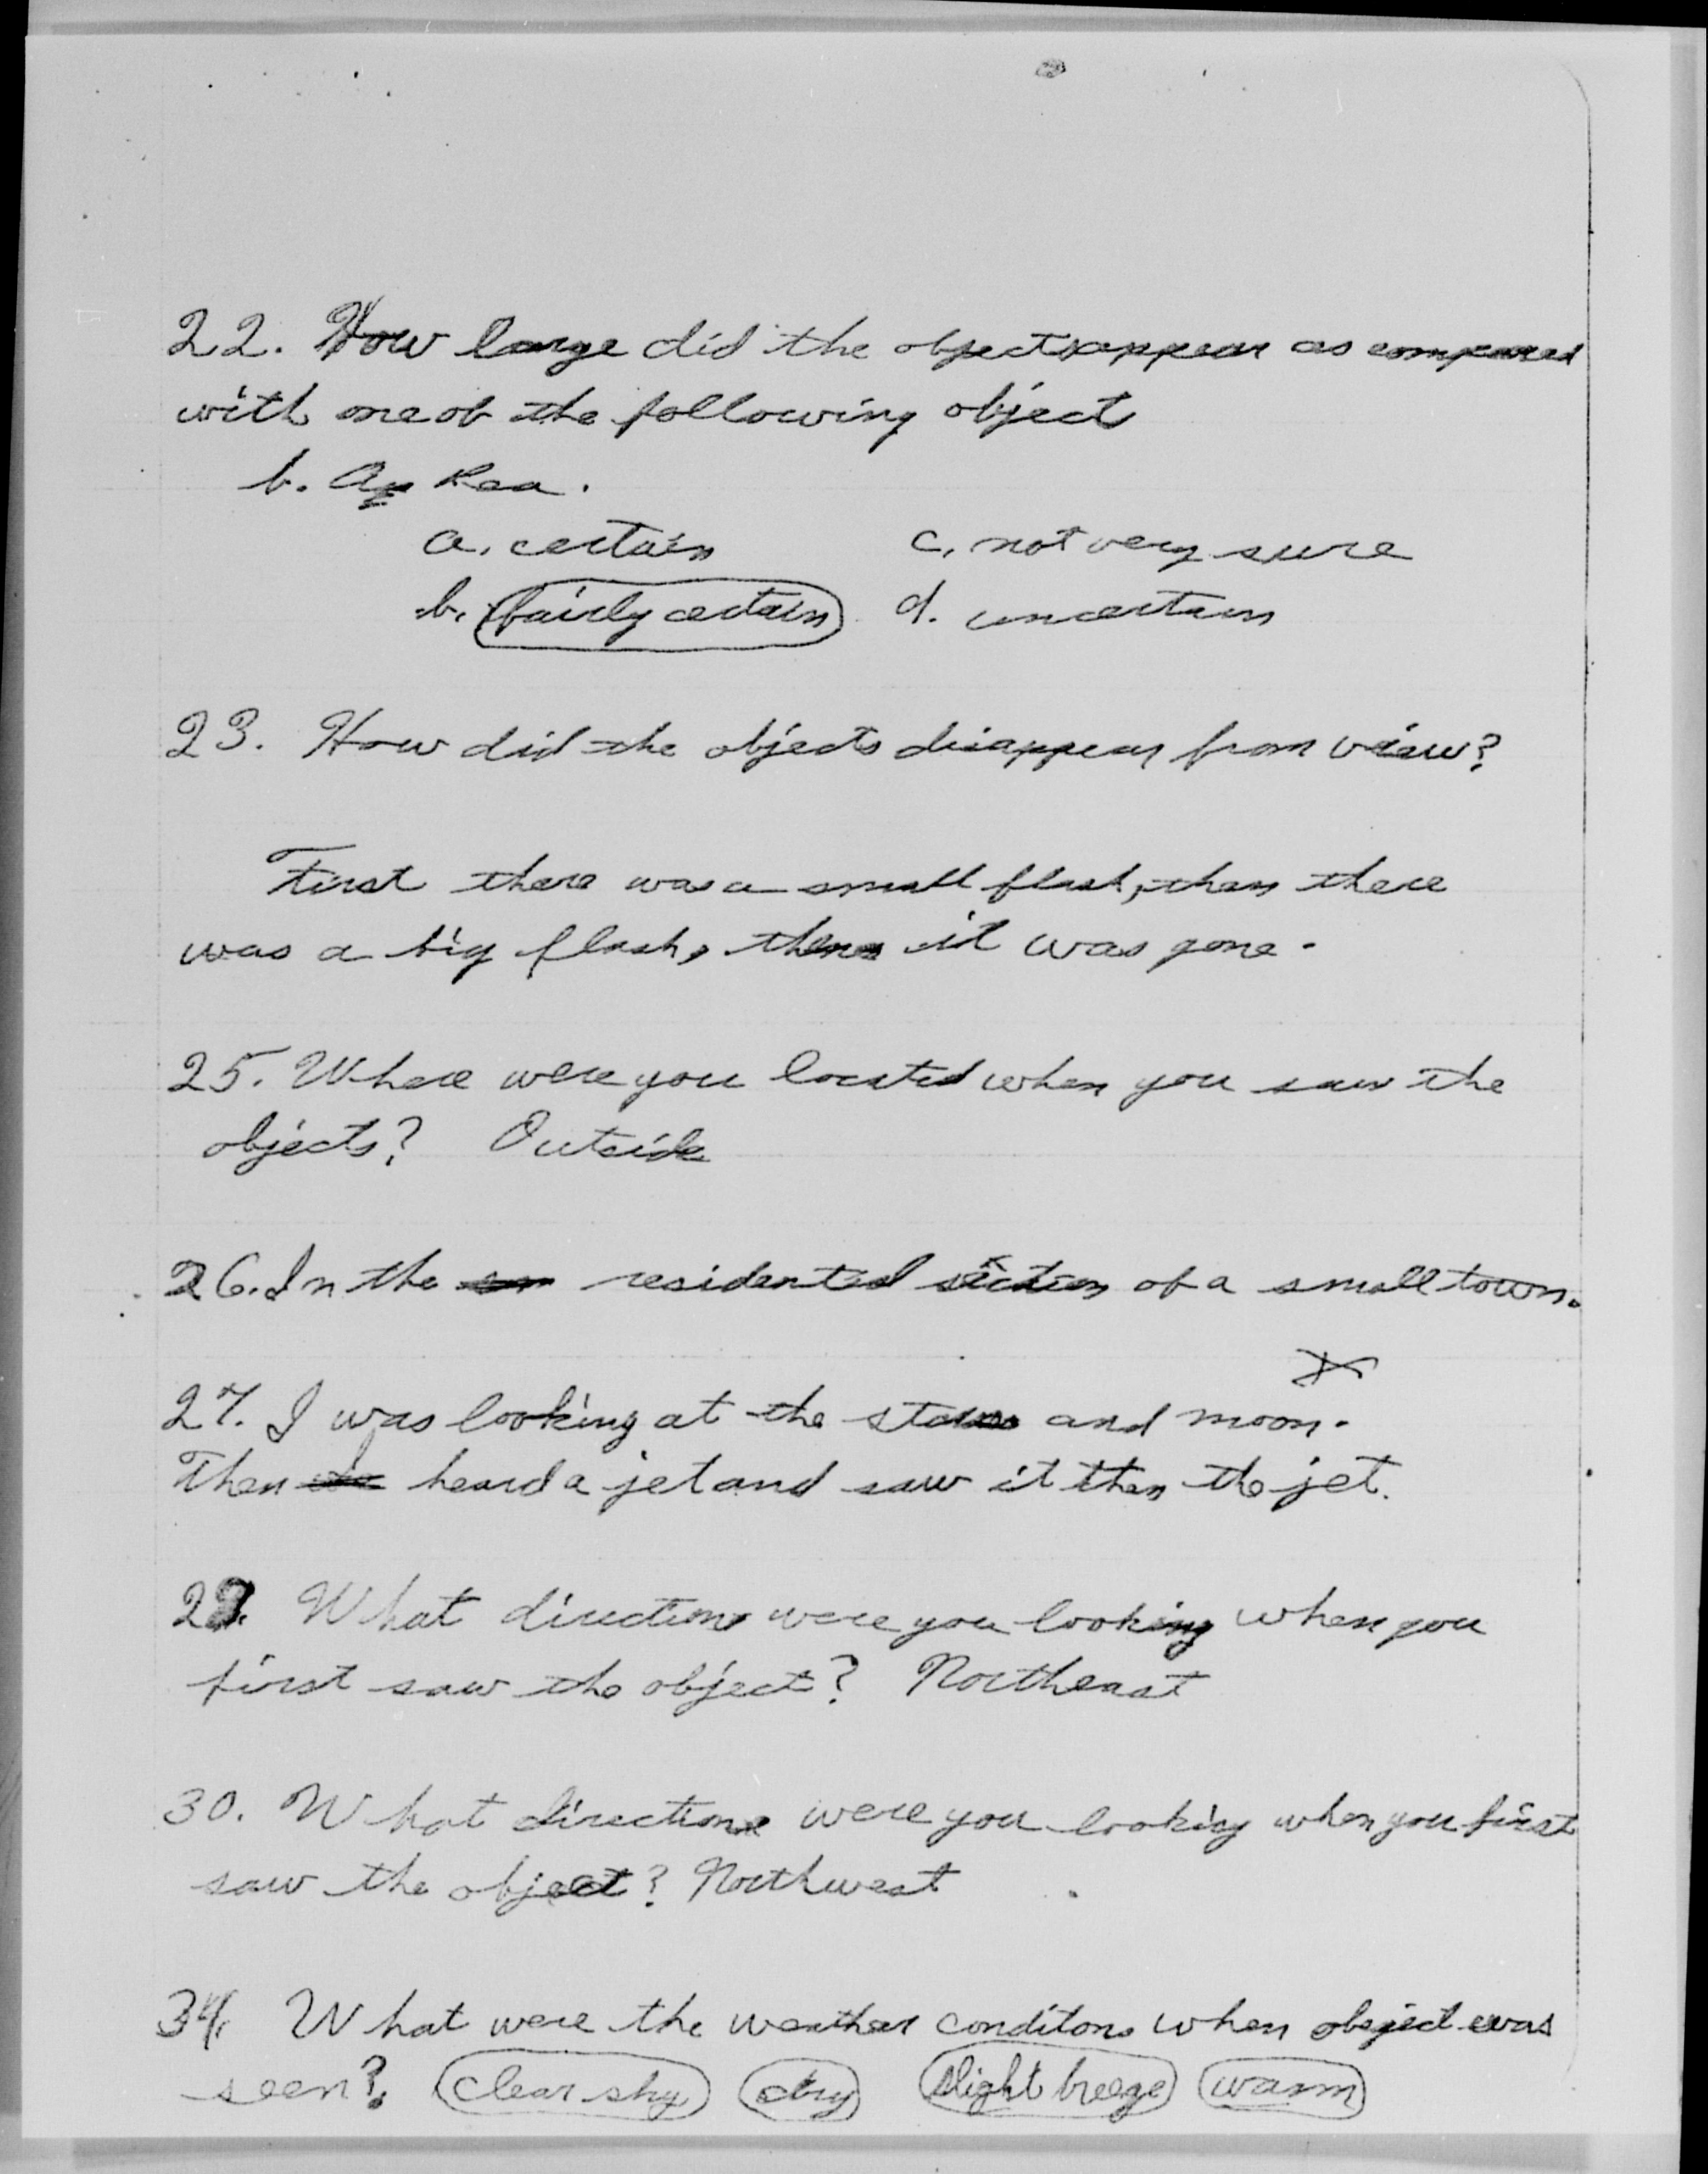 22. How large did the objects appear as compared
with one of the following object
b. A pea.
a. certain c. not very sure
b. fairly certain d. uncertain
23. How did the objects disappear from view?
First there was a small flash, then there
was a big flash, then it was gone.
25. Where were you located when you saw the
objects? Outside
26. In the residented section of a small town.
27. I was looking at the stars and moon.
Then heard a jet and saw it then the jet.
What direction were you looking when you
first saw the object? Northeast
30. What direction were you looking when you first
saw the object? Northwest
34. What were the weather conditons when obeject was
seen? clear sky dry slight breeze warm